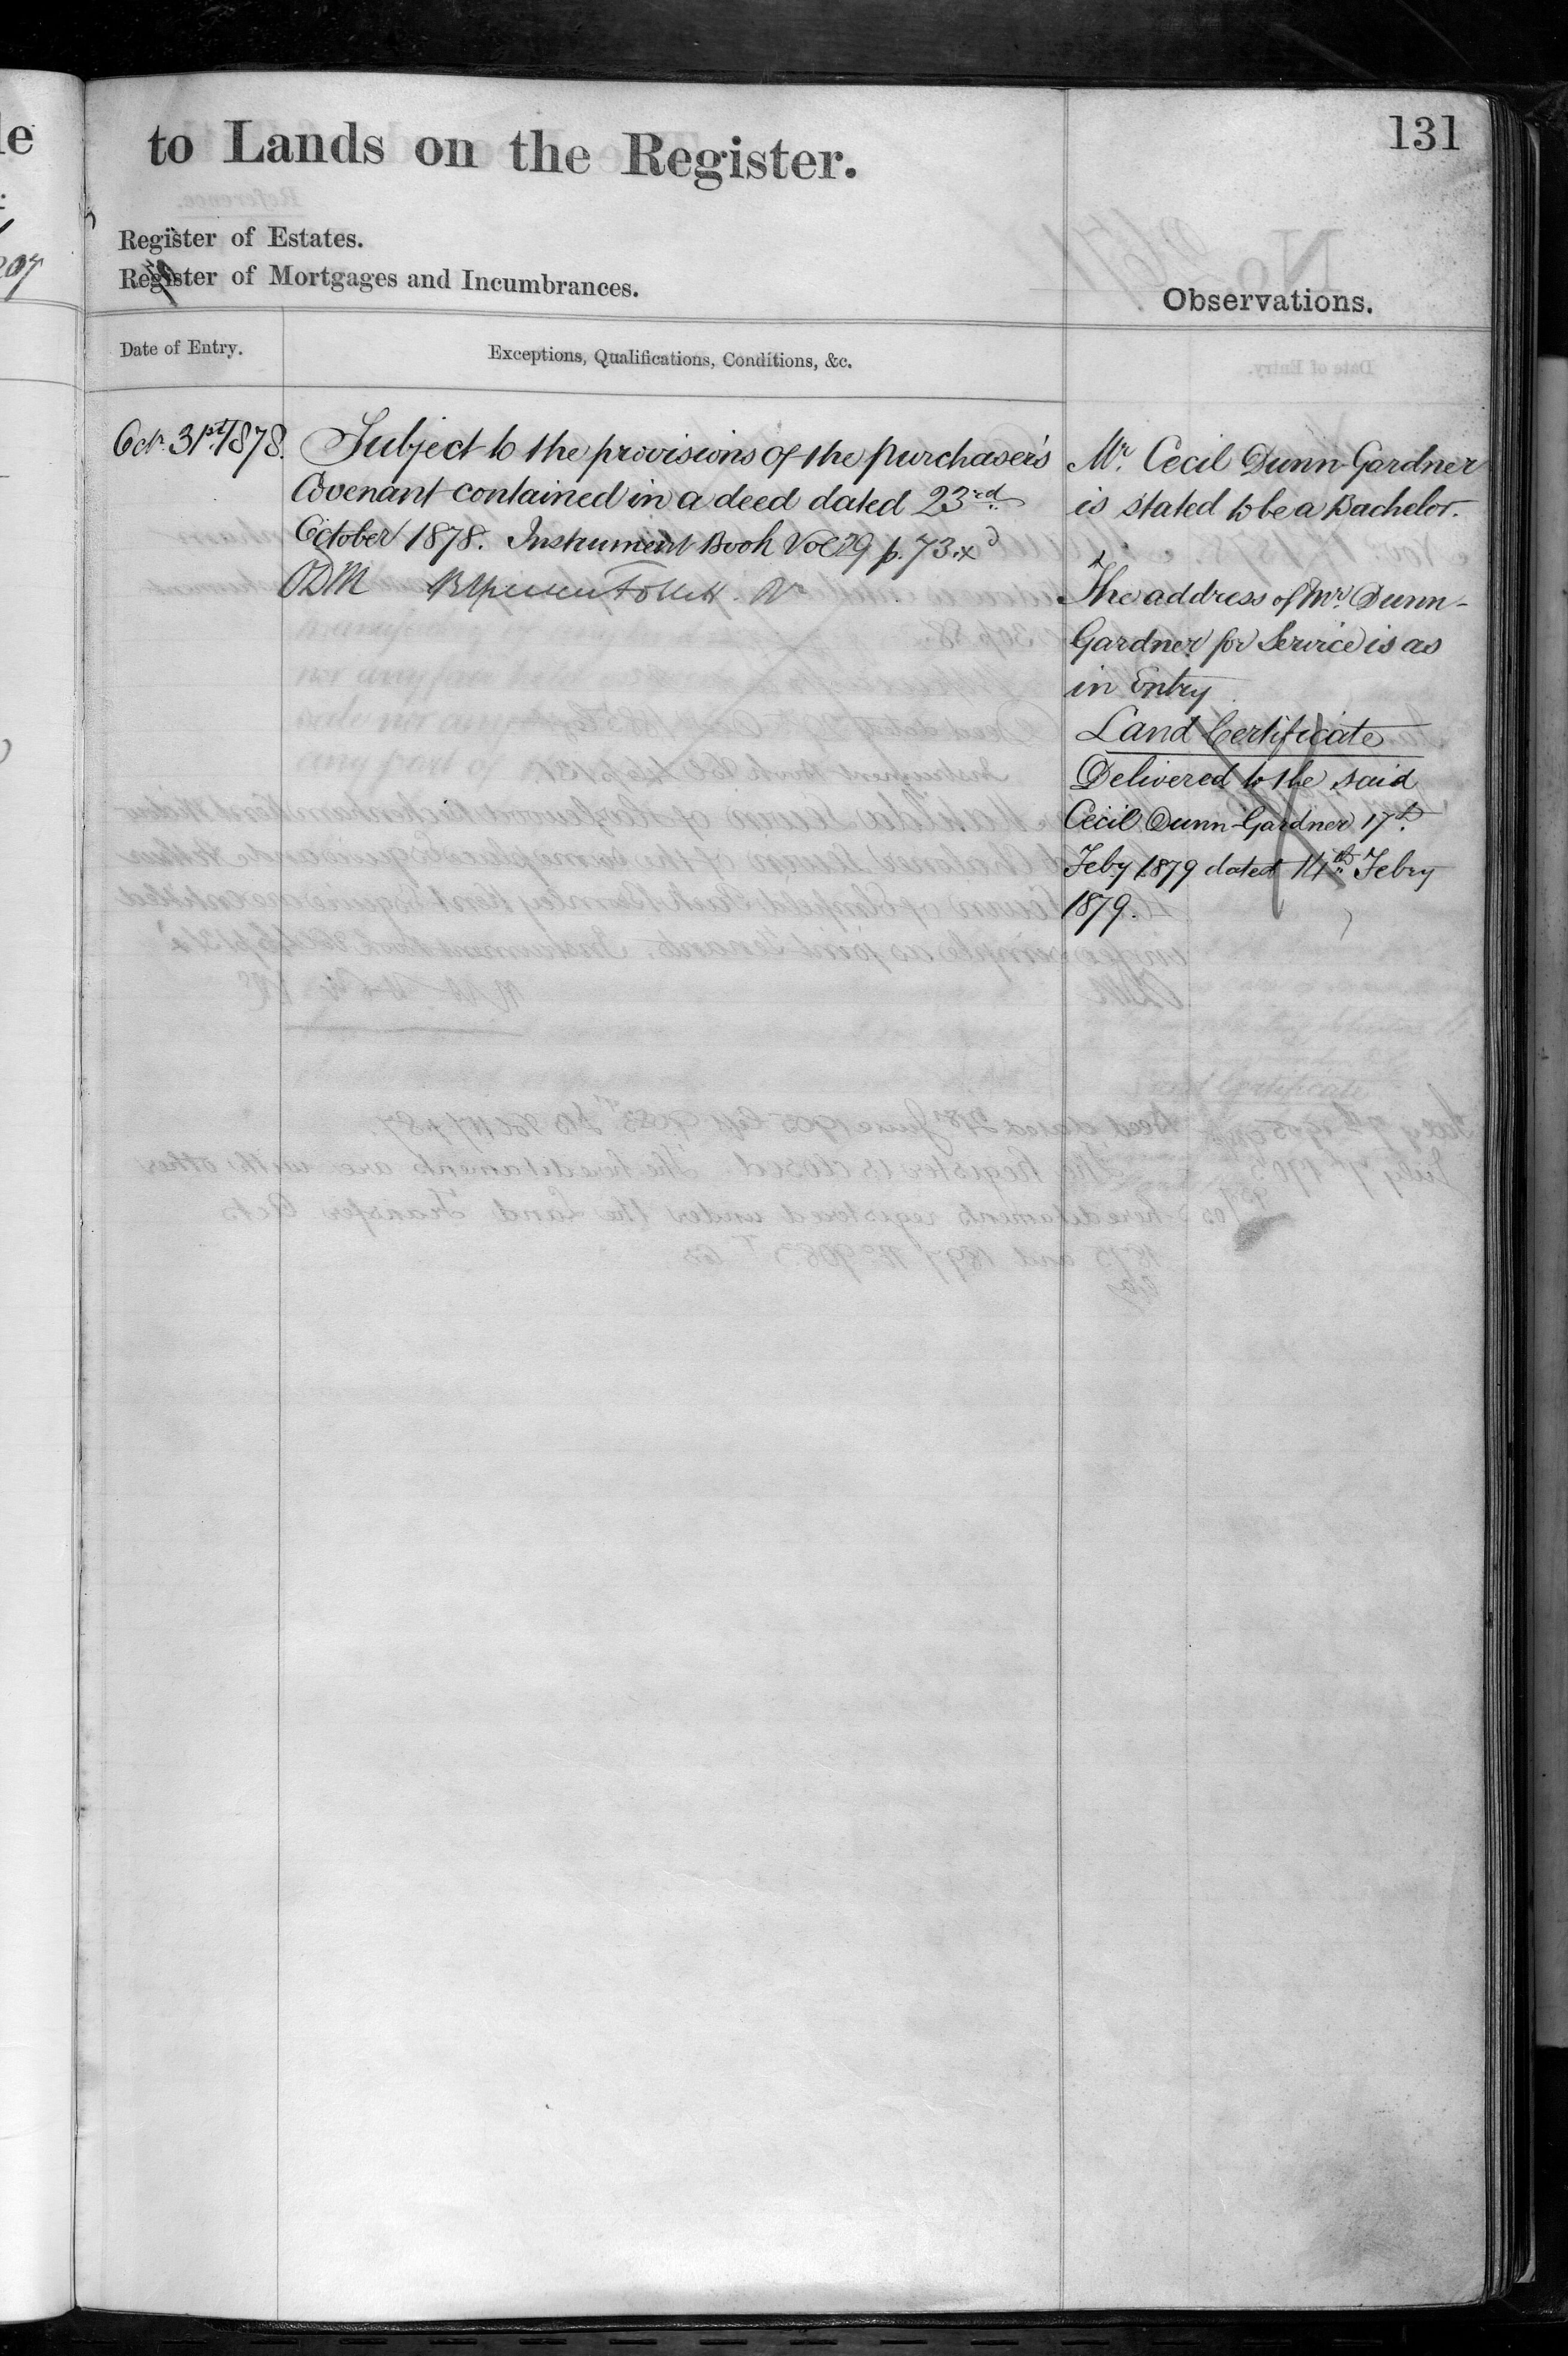 131
to Lands on the Register.
Register of Estates.
Register of Mortgages and Incumbrances.
Observations.
Date of Entry.
Exceptions, Qualifications, Conditions, &c.
Octr. 31st. 1878.
Subject to the provisions of the purchaser's
Covenant contained in a deed dated 23rd.
October 1878. Instrument Book Vol 29 p. 73. x
ODM
Mr. Cecil Dunn-Gardner
is stated to be a Bachelor.
The address of Mr. Dunn-
Gardner for Service is as
in Entry
Land Certificate
Delivered to the said
Cecil Dunn-Gardner 17th.
Feby 1879 dated 14th. Febry
1879.